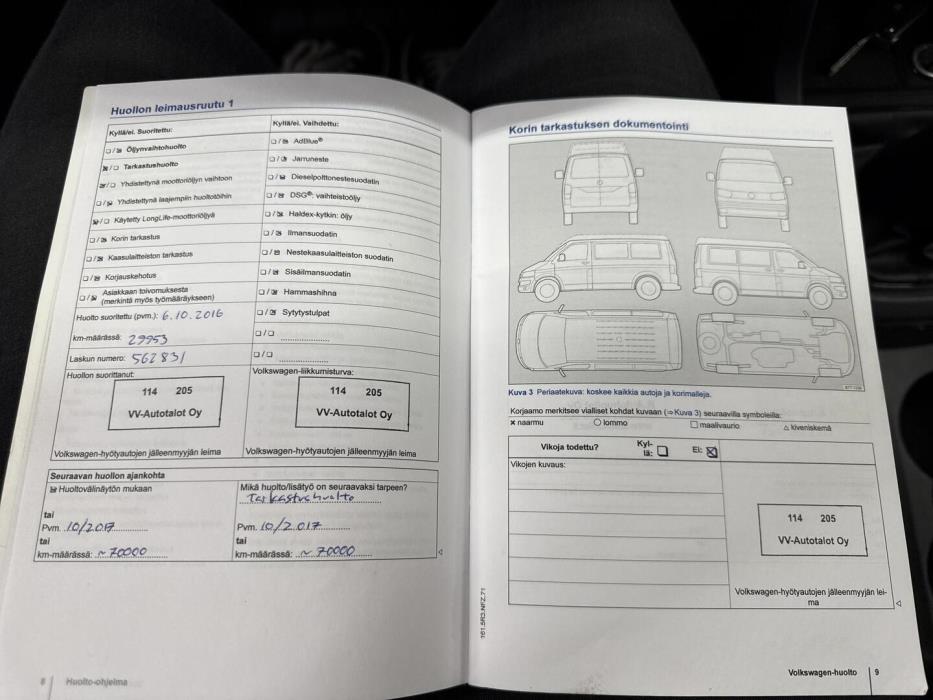 Huollon leimausruutu 1
Kyllä/ei. Suoritettu:
Öljynvaihtohuolto
Tarkastushuolto
Yhdistettynä moottoriöljyn vaihtoon
Yhdistettynä laajempiin huoltotöihin
Käytetty LongLife-moottoriöljyä
Korin tarkastus
Kaasulaitteiston tarkastus
Korjauskehotus
Asiakkaan toivomuksesta
(merkintä myös työmääräykseen)
Huolto suoritettu (pvm.): 6.10.2016
km-määrässä: 29953
Laskun numero: 562831
Huollon suorittanut:
114 205
VV-Autotalot Oy
Volkswagen-hyötyautojen jälleenmyyjän leima
Kyllä/ei. Vaihdettu:
AdBlue®
Jarruneste
Dieselpolttonestesuodatin
DSG®: vaihteistoöljy
Haldex-kytkin: öljy
Ilmansuodatin
Nestekaasulaitteiston suodatin
Sisäilmansuodatin
Hammashihna
Sytytystulpat
Volkswagen-liikkumisturva:
114 205
VV-Autotalot Oy
Volkswagen-hyötyautojen jälleenmyyjän leima
Seuraavan huollon ajankohta
Huoltovälinäytön mukaan
tai
Pvm. 10/2017
tai
km-määrässä: ~ 70000
Mikä huolto/lisätyö on seuraavaksi tarpeen?
Tarkastushuolto
Pvm. 10/2017
tai
km-määrässä: ~ 70000
8 Huolto-ohjelma
Korin tarkastuksen dokumentointi
Kuva 3 Periaatekuva: koskee kaikkia autoja ja korimalleja.
Korjaamo merkitsee vialliset kohdat kuvaan (⇒Kuva 3) seuraavilla symboleilla:
× naarmu ○ lommo □ maalivaurio △ kiveniskemä
Vikoja todettu? Kyl-
lä: Ei:
Vikojen kuvaus:
114 205
VV-Autotalot Oy
Volkswagen-hyötyautojen jälleenmyyjän lei-
ma
161.5R3.NFZ.71
Volkswagen-huolto 9